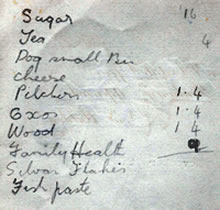 Sugar 1 6
Tea 4
Dog small
cheese
Pilchers 1 . 4
Oxos 1 . 4
Wood 1 4
Family Health 9
Silver Flakes
Fish paste